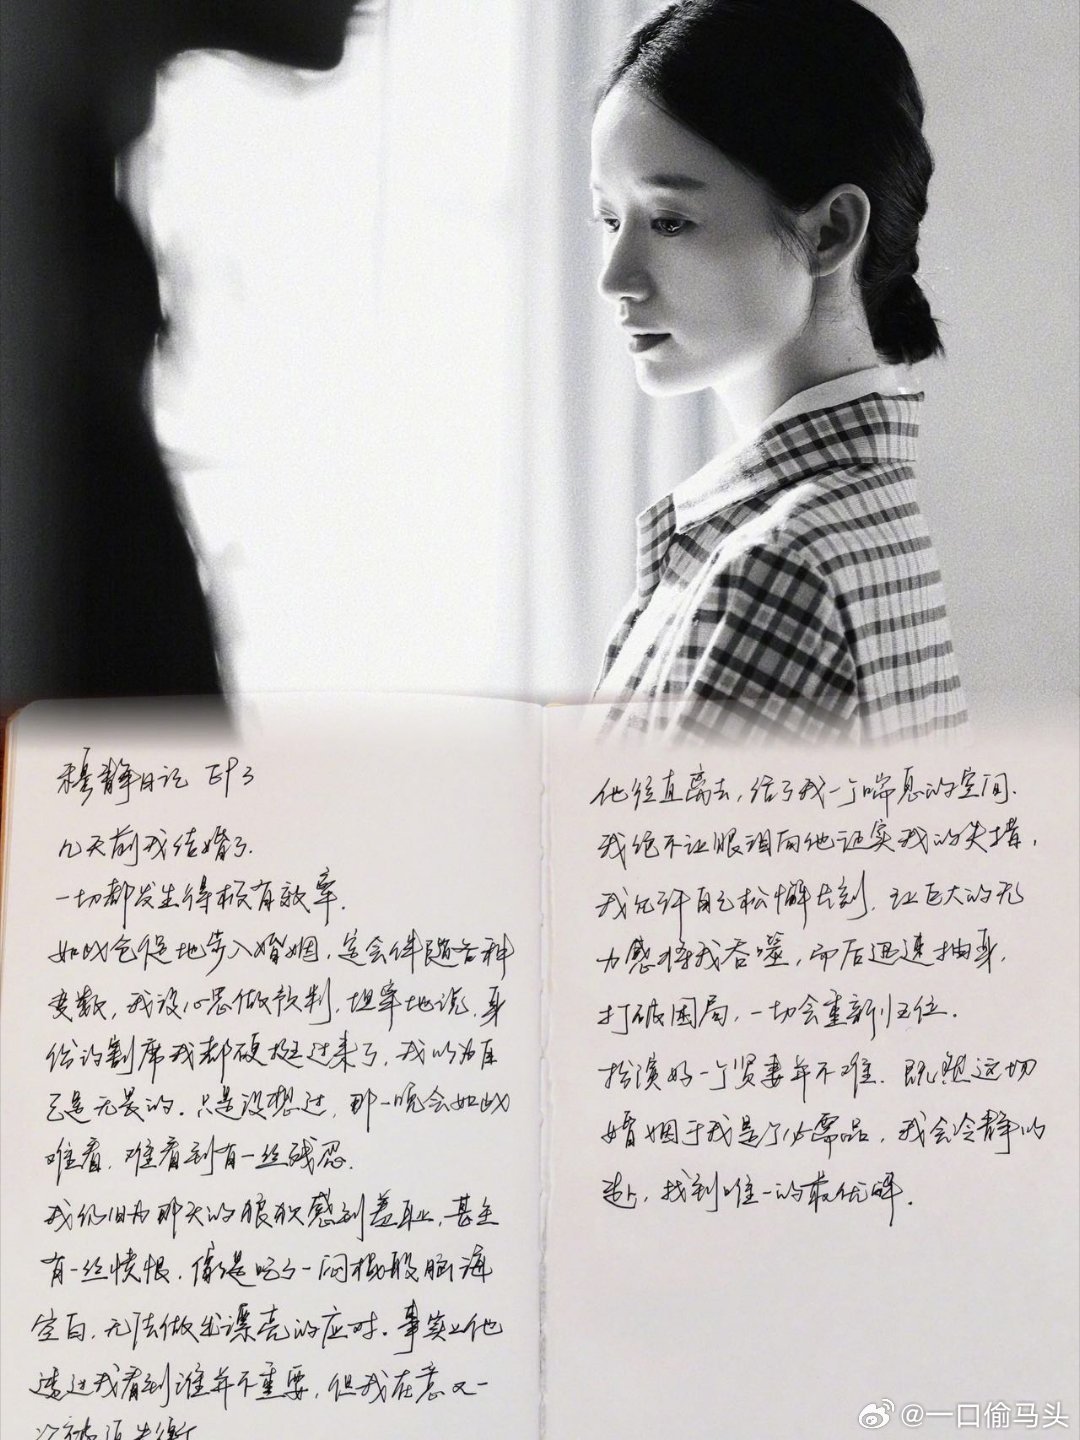 穆静日记 EP3
几天前我结婚了.
一切都发生得极有效率.
如此仓促地步入婚姻，定会伴随各种
变数，我没心思做预判，坦率地说，身
份的割席我都硬挺过来了，我以为自
己是无畏的.只是没想过，那一晚会如此
难看，难看到有一丝残忍.
我仍旧为那天的狼狈感到羞耻，甚至
有一丝愤恨.像是吃了一闷棍般脑海
空白，无法做出漂亮的应对.事实上他
透过我看到谁并不重要，但我在意又一
次
他径直离去，给了我一个喘息的空间.
我绝不让眼泪向他证实我的失措，
我允许自己松懈片刻，让巨大的无
力感将我吞噬，而后迅速抽身，
打破困局，一切会重新归位.
扮演好一个贤妻并不难.既然这场
婚姻于我是个必需品，我会冷静的
，找到唯一的最优解.
@一口偷马头